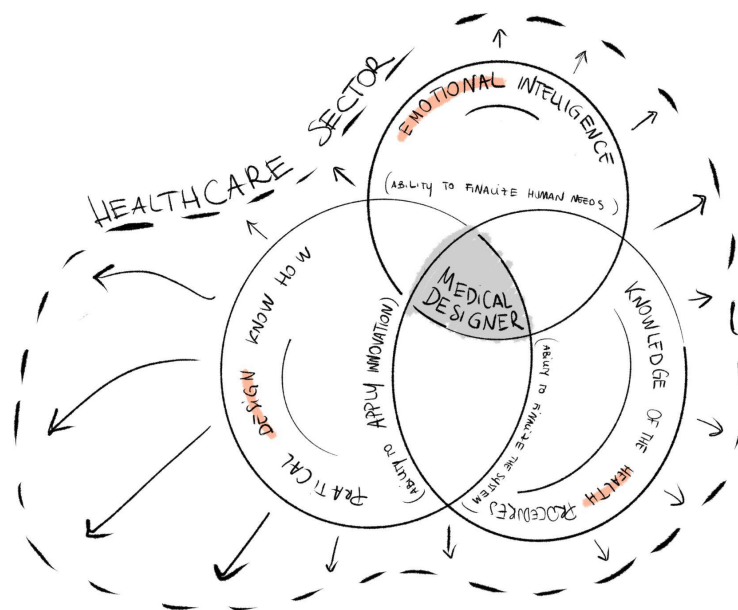 HEALTHCARE SECTOR
EMOTIONAL INTELLIGENCE
(ABILITY TO FINALIZE HUMAN NEEDS)
MEDICAL
DESIGNER
PRATICAL DESIGN KNOW HOW
(ABILITY TO APPLY INNOVATION)
KNOWLEDGE OF THE HEALTH PROCEDURES
(ABILITY TO FINALIZE THE SYSTEM)